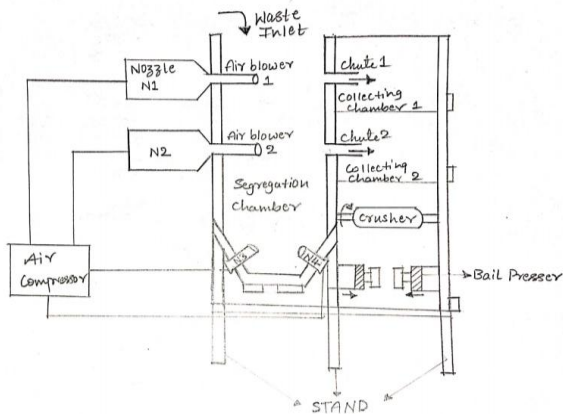 Waste
Inlet
Nozzle
N1
Air blower
1
Chute1
Collecting
Chamber 1
N2
Air blower
2
Chute2
Collecting
Chamber 2
Segregation
Chamber
Crusher
N3
N4
Air
Compressor
Bail Presser
STAND